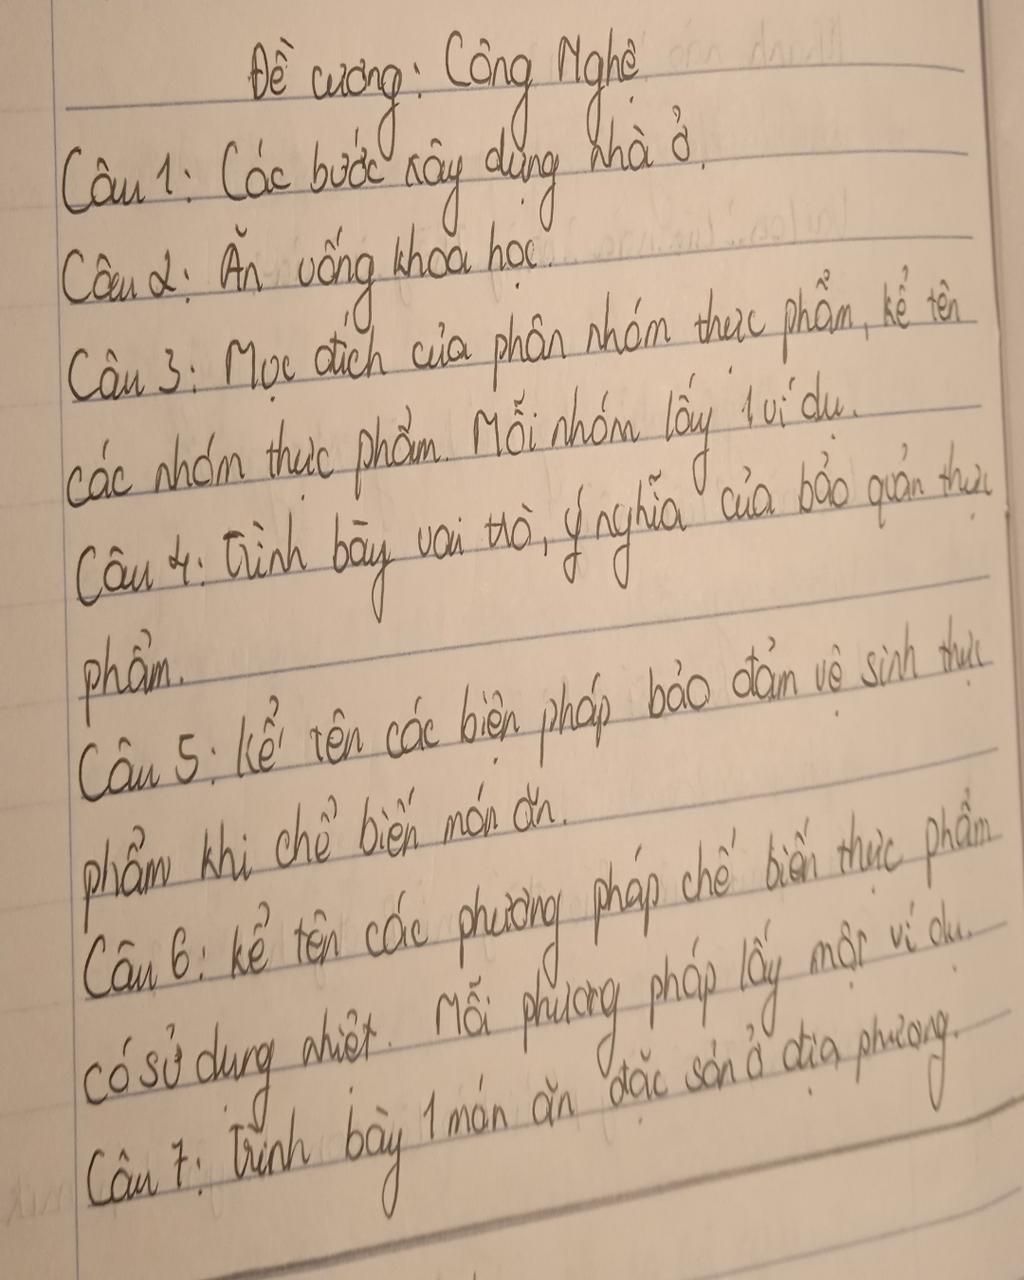 Đề cương: Công Nghệ
Câu 1: Các bước xây dựng nhà ở.
Câu 2: Ăn uống khoa học.
Câu 3: Mục đích của phân nhóm thực phẩm, kể tên
các nhóm thực phẩm. Mỗi nhóm lấy 1 ví dụ.
Câu 4: Trình bày vai trò, ý nghĩa của bảo quản thực
phẩm.
Câu 5: Kể tên các biện pháp bảo đảm vệ sinh thực
phẩm khi chế biến món ăn.
Câu 6: Kể tên các phương pháp chế biến thực phẩm
có sử dụng nhiệt. Mỗi phương pháp lấy một ví dụ.
Câu 7: Trình bày 1 món ăn đặc sản ở địa phương.